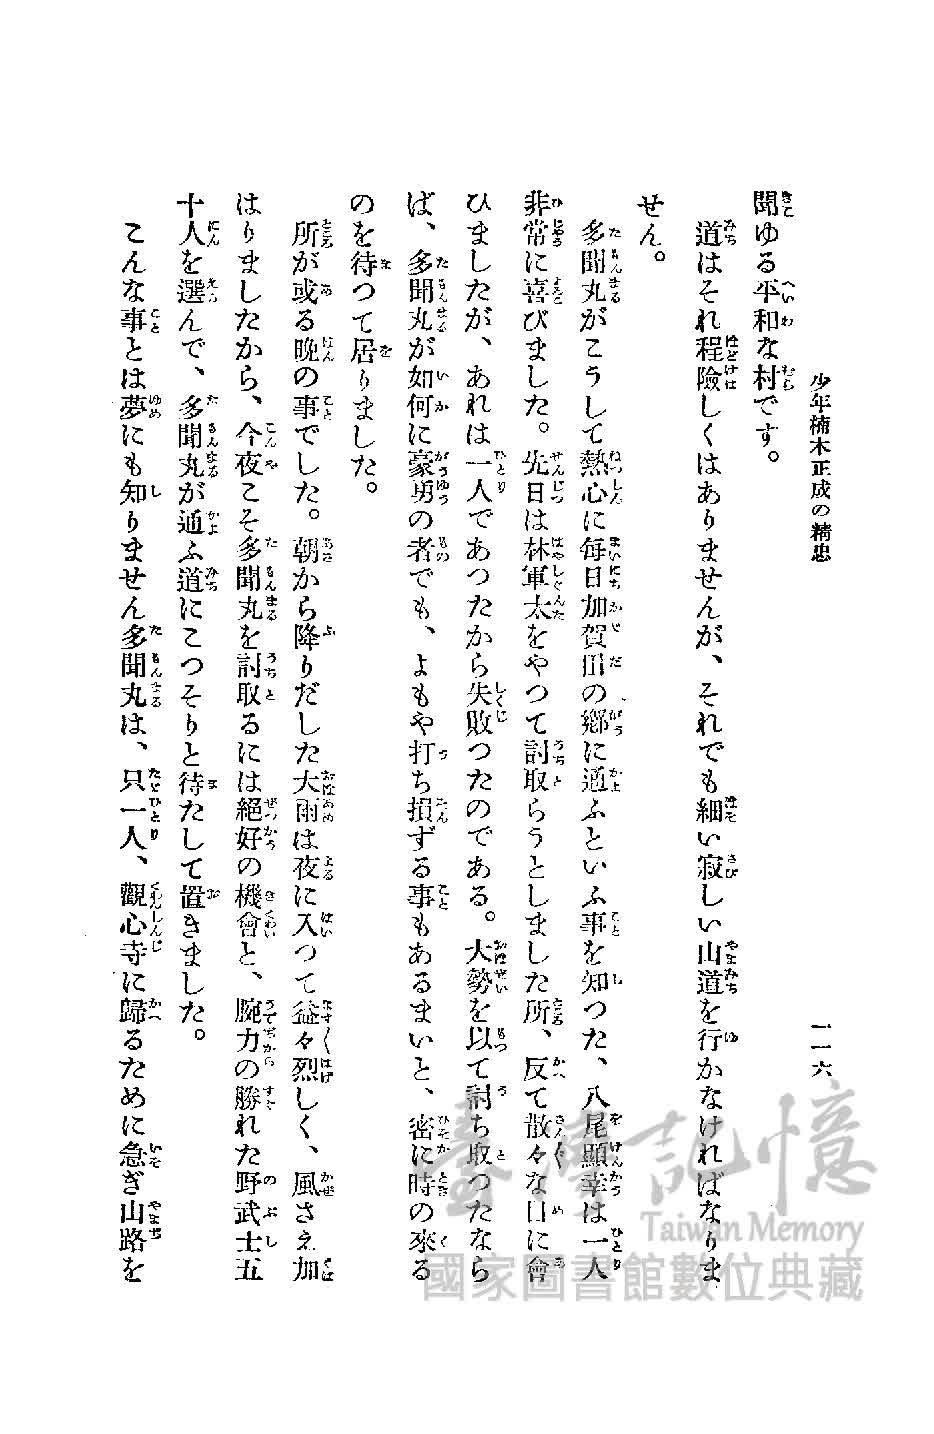 少年楠木正成の精忠
一一六
聞ゆる平和な村です。
道はそれ程險しくはありませんが、それでも細い寂しい山道を行かなければなりま
せん。
多聞丸がこうして熱心に毎日加賀田の鄕に通ふといふ事を知つた、八尾顯幸は一人
非常に喜びました。先日は林軍太をやつて討取らうとしました所、反て散々な目に會
ひましたが、あれは一人であつたから失敗つたのである。大勢を以て討ち取つたなら
ば、多聞丸が如何に豪勇の者でも、よもや打ち損ずる事もあるまいと、密に時の來る
のを待つて居りました。
所が或る晩の事でした。朝から降りだした大雨は夜に入つて益々烈しく、風さえ加
はりましたから、今夜こそ多聞丸を討取るには絕好の機會と、腕力の勝れた野武士五
十人を選んで、多聞丸が通ふ道にこつそりと待たして置きました。
こんな事とは夢にも知りません多聞丸は、只一人、觀心寺に歸るために急ぎ山路を
臺灣記憶
Taiwan Memory
國家圖書館數位典藏